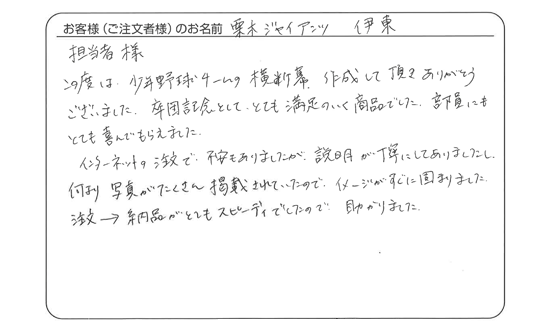 お客様(ご注文者様)のお名前 栗木ジャイアンツ 伊東
担当者様
この度は、少年野球チームの横断幕、作成して頂きありがとう
ございました。卒団記念として、とても満足のいく商品でした。部員にも
とても喜んでもらえました。
インターネットの注文で、不安もありましたが、説明が丁寧にしてありましたし、
何より写真がたくさん掲載されていたので、イメージがすぐに固まりました。
注文→納品がとてもスピーディでしたので、助かりました。